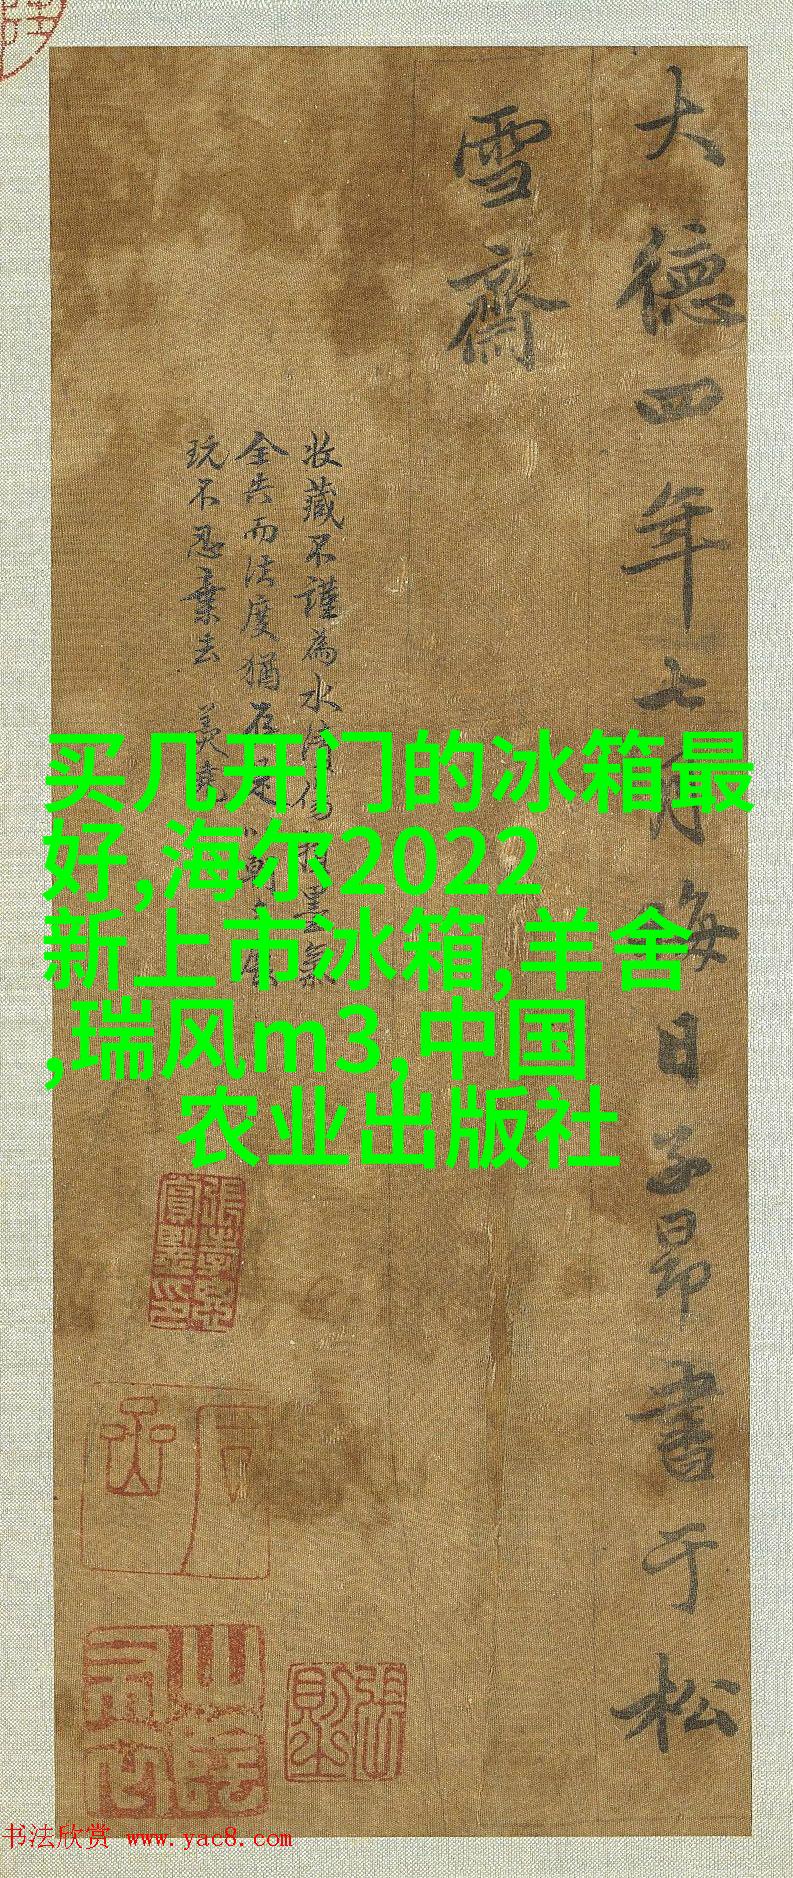 大德四年七月晦日子昂書于松
雪齋
收藏不謹為水漬傷損墨氣
全失而法度猶存
玩不忍棄去
买几开门的冰箱最
好,海尔2022
新上市冰箱,羊舍
,瑞风m3,中国
农业出版社
书法欣赏 www.yac8.com